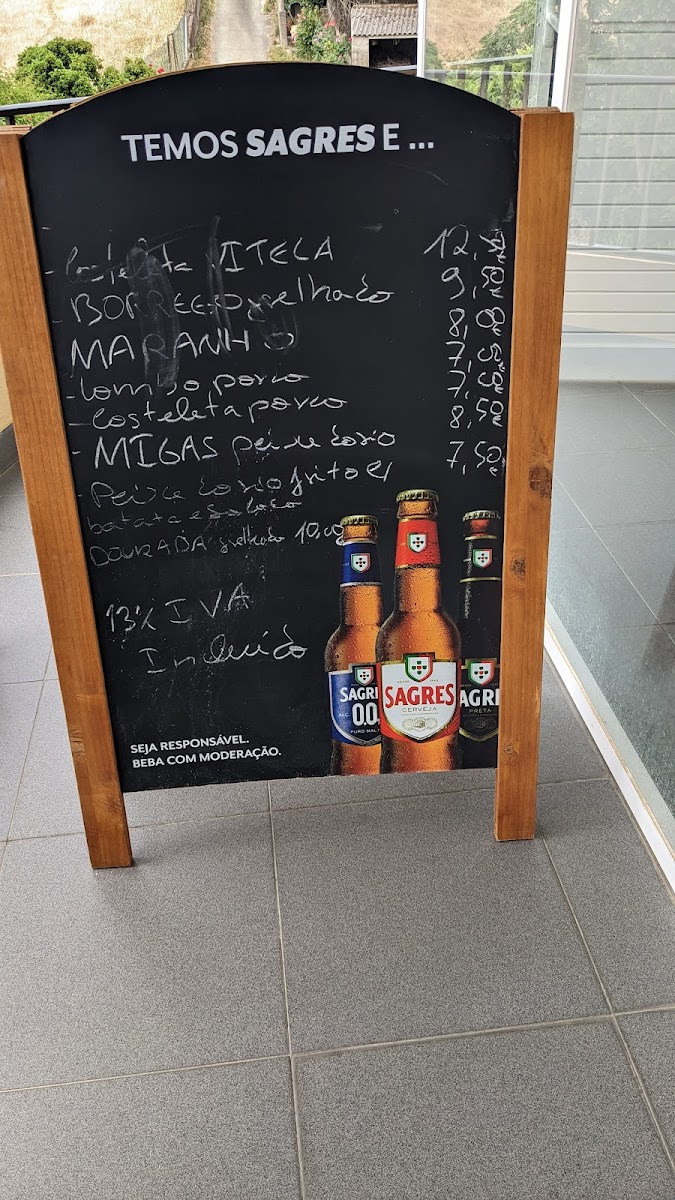 TEMOS SAGRES E ...
- Costeleta VITELA 12,50
- BORREGO grelhado 9,50
MARANHO 8,00
- Lombo porco 7,50
- Costeleta porco 7,50
- MIGAS peixe do rio 8,50
- Peixe do rio frito c/ 7,50
batata e
DOURADA grelhado 10,00
13% IVA
Incluído
SAGRES
0.0
PURO MALTE
SAGRES
CERVEJA
SAGRES
PRETA
SEJA RESPONSÁVEL.
BEBA COM MODERAÇÃO.